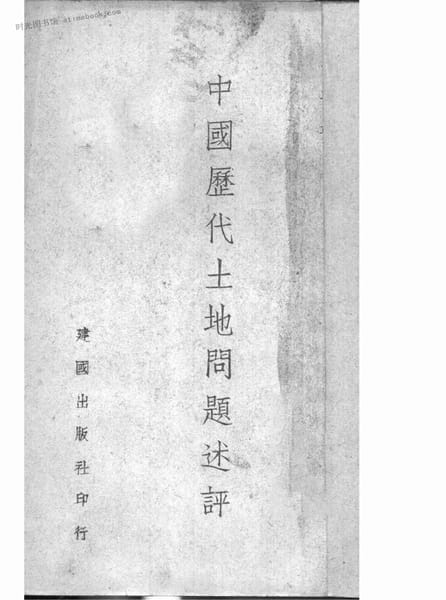 时光图书馆 atimebook.com
中國歷代土地問題述評
建國出版社印行